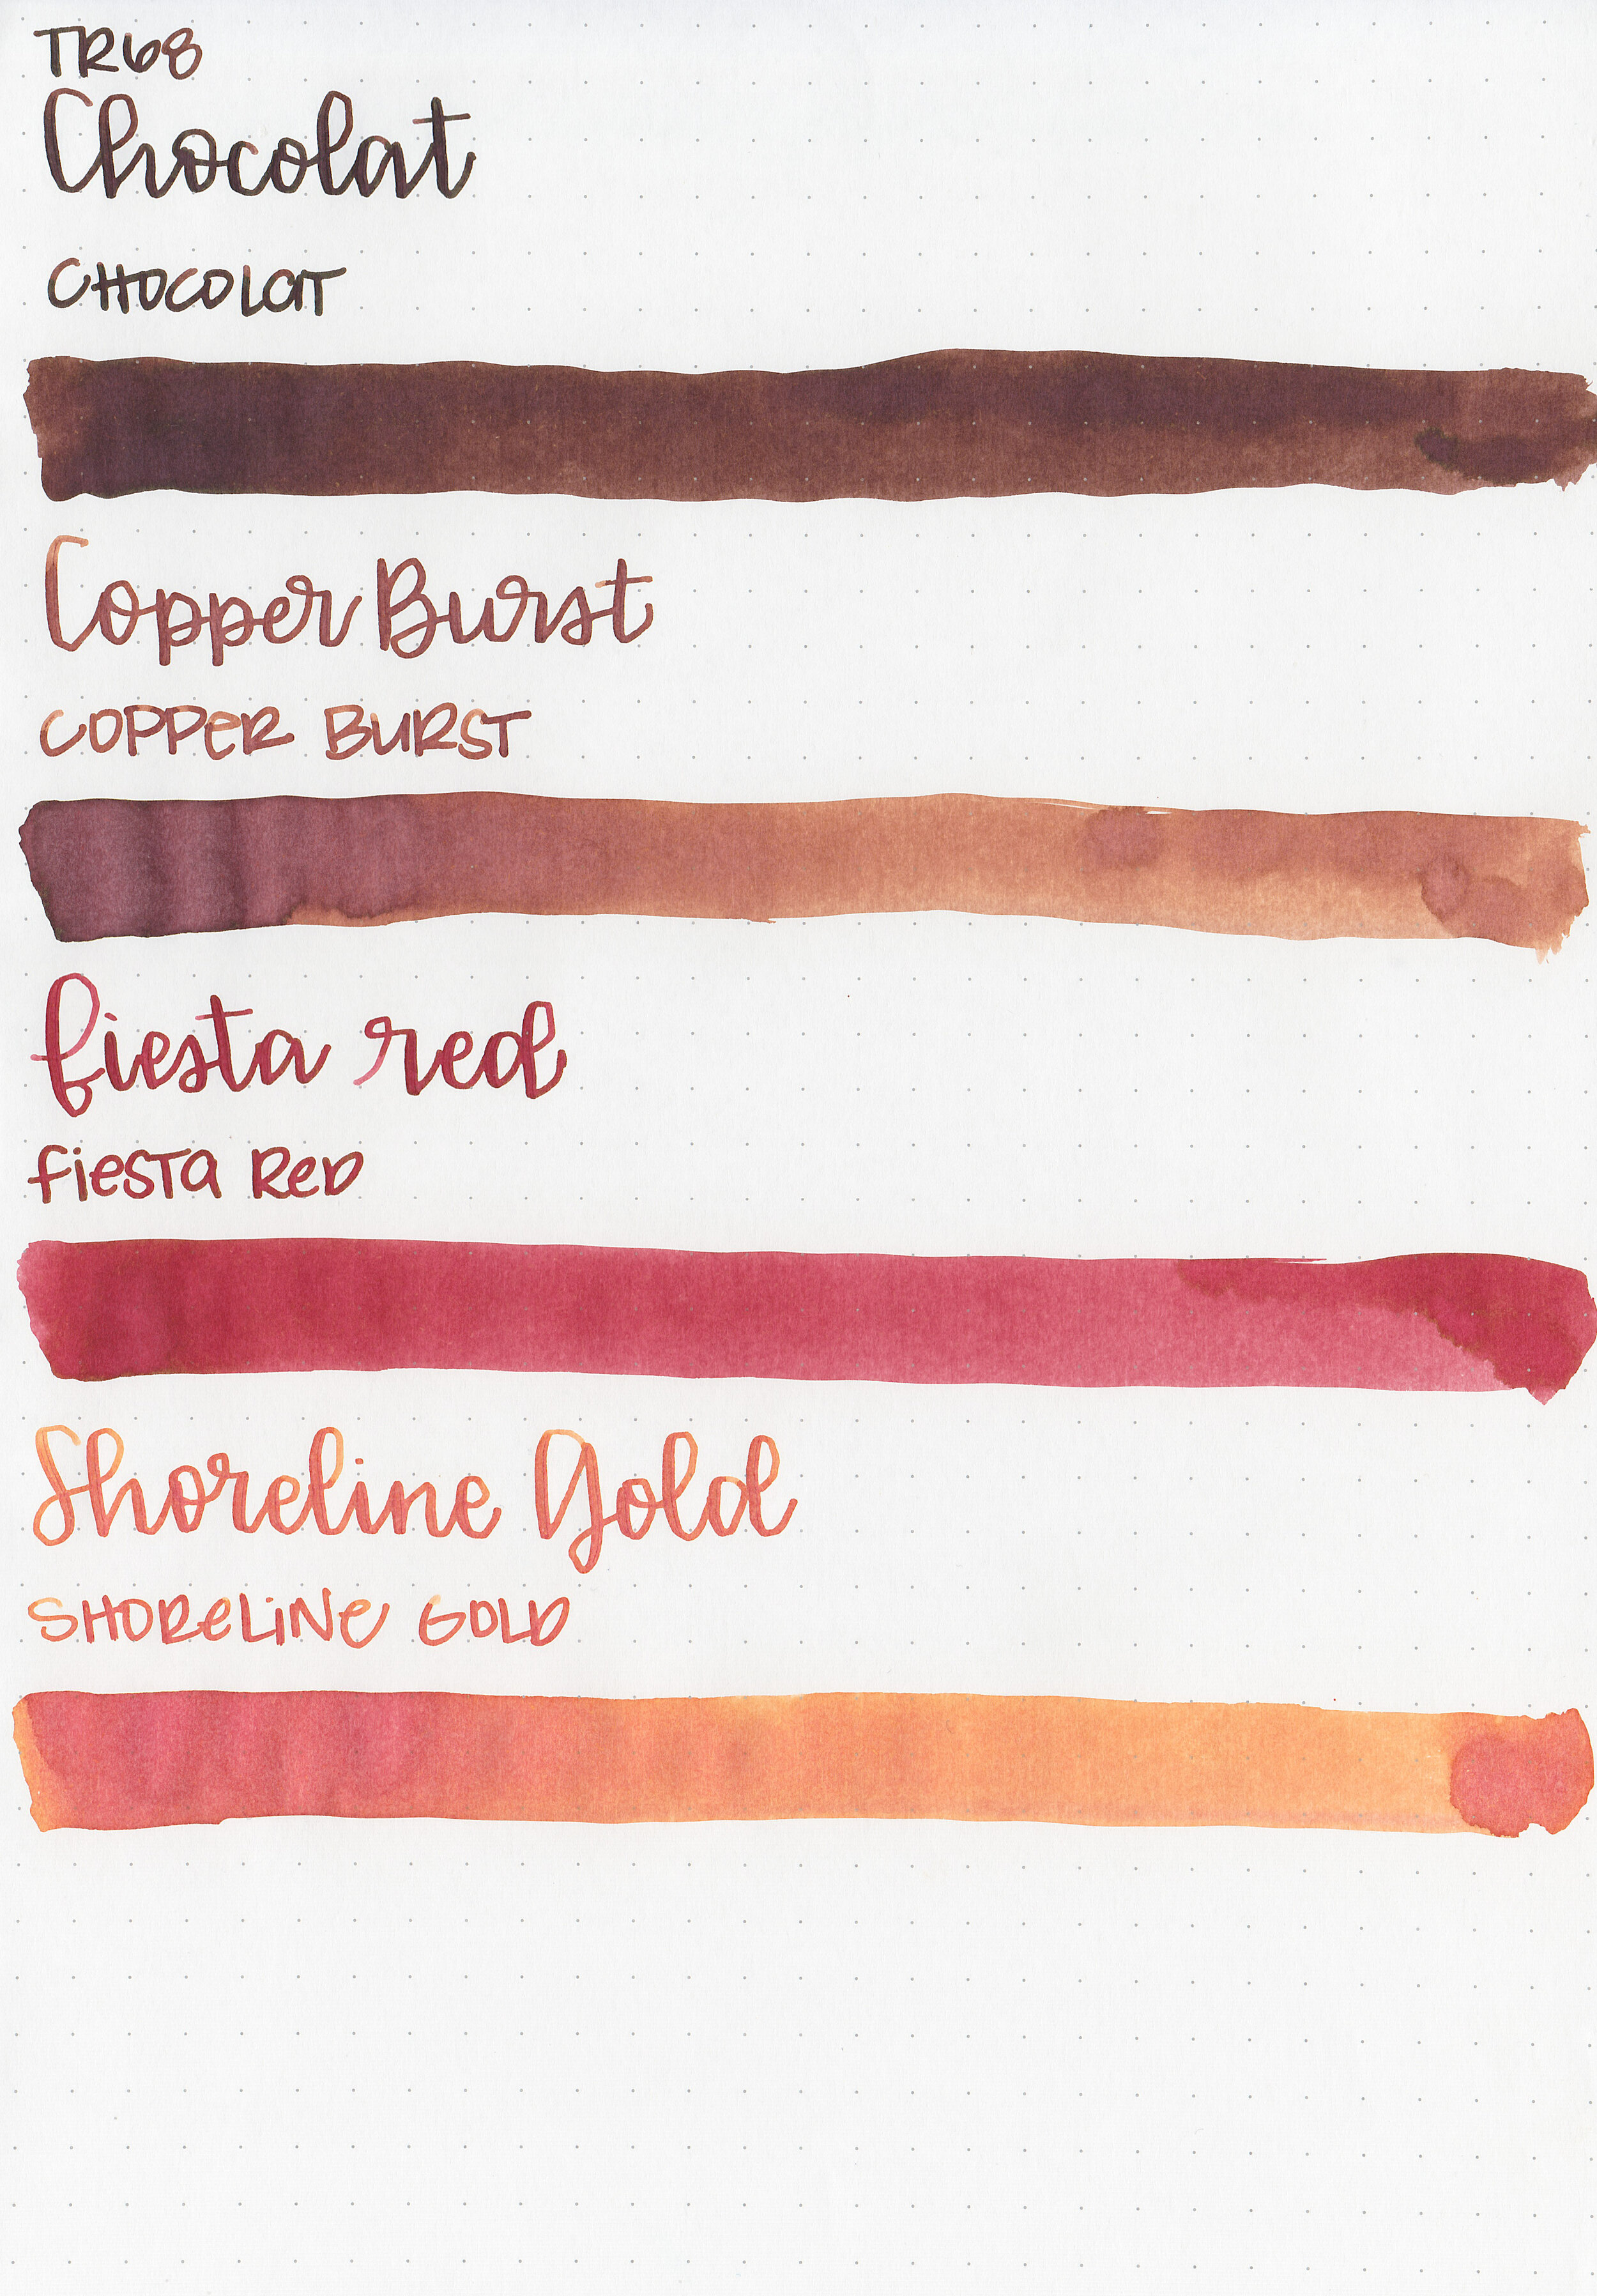 TR68
Chocolat
CHOCOLAT
Copper Burst
COPPER BURST
fiesta red
fiesta Red
Shoreline Gold
SHOReLiNe GOLD